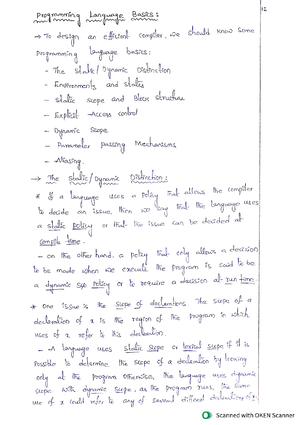 12
Programming Language Basics:
→ To design an efficient compiler, we should know some
Programming language basics:
- The static / Dynamic Distinction
- Environments and states
- Static scope and Block structure
- Explicit Access control
- Dynamic Scope
- Parameter passing Mechanisms
- Aliasing.
→ The static / Dynamic Distinction:
* If a language uses a policy that allows the compiler
to decide an issue, then we say that the language uses
a static policy or that the issue can be decided at
compile time.
- on the other hand, a policy that only allows a decision
to be made when we execute the program is said to be
a dynamic policy or to require a decision at run time.
* One issue is the scope of declarations. The scope of a
declaration of x is the region of the program in which
uses of x refer to this declaration.
- A language uses static scope or lexical scope if it is
possible to determine the scope of a declaration by looking
only at the program. Otherwise, the language uses dynamic
scope. With dynamic scope, as the program runs, the same
use of x could refer to any of several different declarations of x.
Scanned with OKEN Scanner